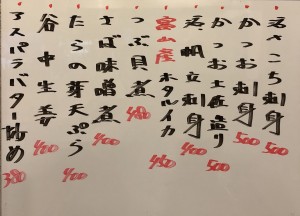 かつお刺身
500
かつお土佐造り
500
帆立刺身
400
富山産ホタルイカ
450
つぶ貝煮
480
さば味噌煮
400
たらの芽天ぷら
400
谷中生姜
400
アスパラバター炒め
380